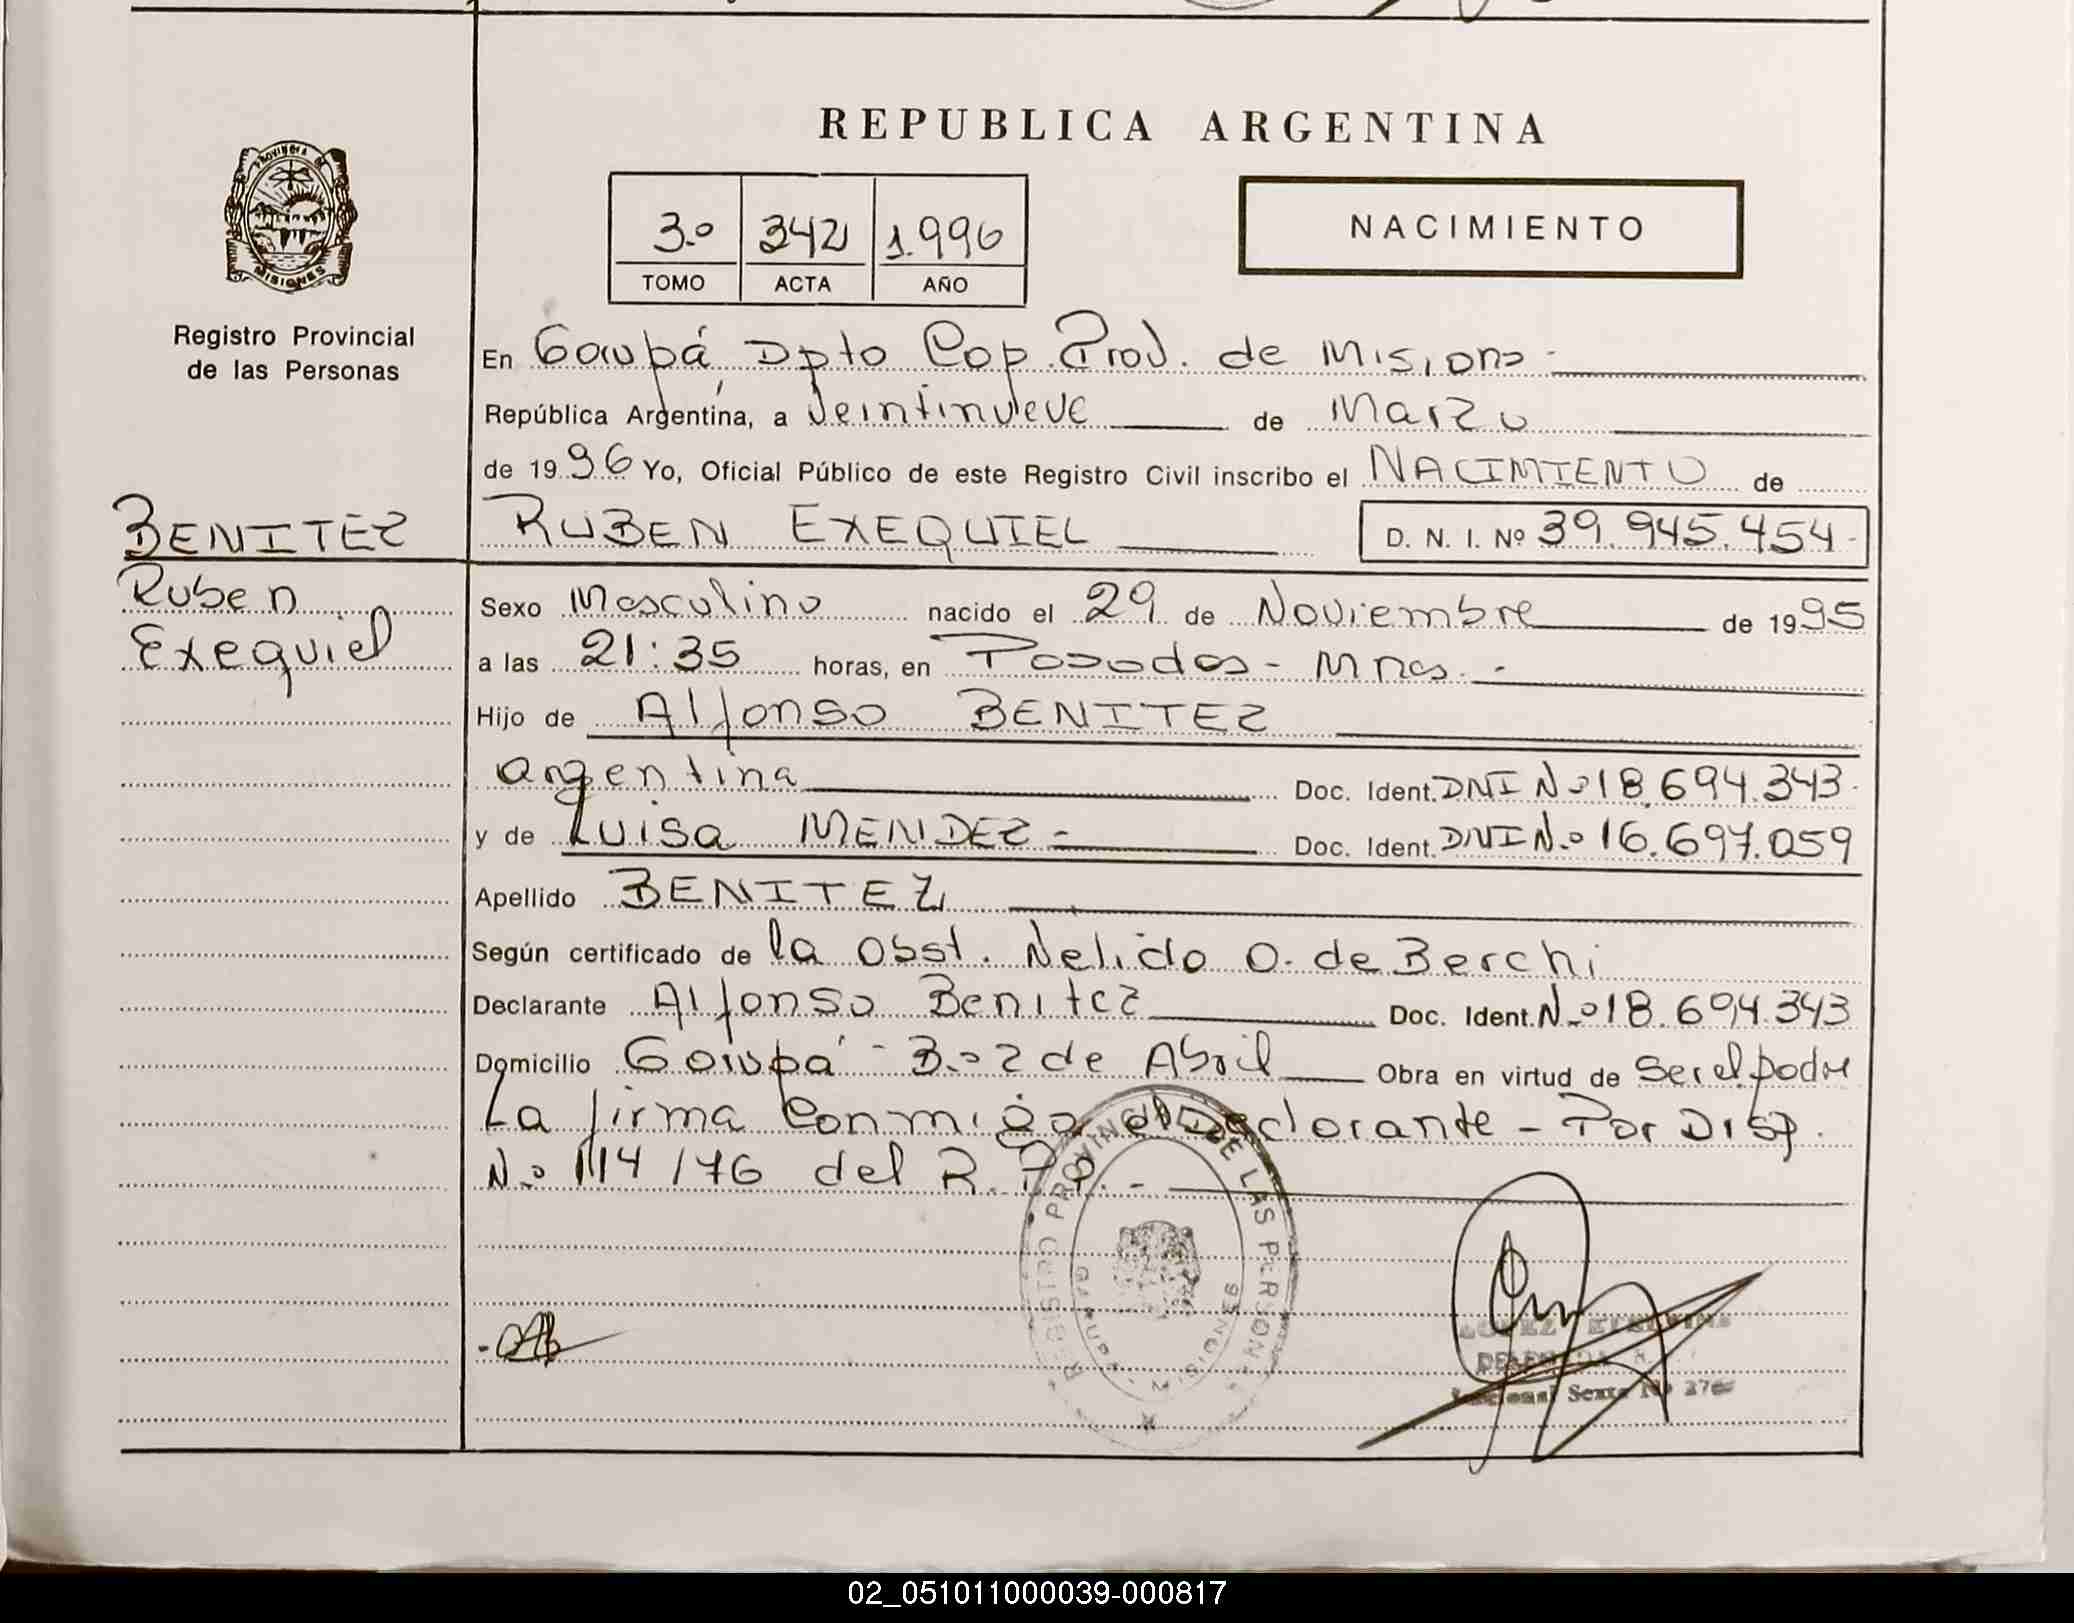 REPUBLICA ARGENTINA
PROVINCIA DE
MISIONES
Registro Provincial
de las Personas
3.º 342 1.996
TOMO ACTA AÑO
NACIMIENTO
En Garupá, Dpto Cap. Prov. de Misiones -
República Argentina, a Veintinueve de Marzo
de 1996 Yo, Oficial Público de este Registro Civil inscribo el NACIMIENTO de
BENITEZ
RUBEN EXEQUIEL D. N. I. Nº 39.945.454-
Ruben
Exequiel
Sexo Masculino nacido el 29 de Noviembre de 1995
a las 21:35 horas, en Posadas - Mnes. -
Hijo de Alfonso BENITEZ
argentina Doc. Ident. DNI Nº 18.694.343-
y de Luisa MENDEZ - Doc. Ident. DNI N.º 16.697.059
Apellido BENITEZ
Según certificado de la Obst. Nelida O. de Berchi
Declarante Alfonso Benitez Doc. Ident. Nº 18.694.343
Domicilio Garupá - B.º 2 de Abril Obra en virtud de Ser el padre
La firma Conmigo el Declarante - Por Disp.
N.º 114/76 del R.P.P. -
REGISTRO PROVINCIAL DE LAS PERSONAS
GARUPA - MISIONES
LOPEZ
02_051011000039-000817